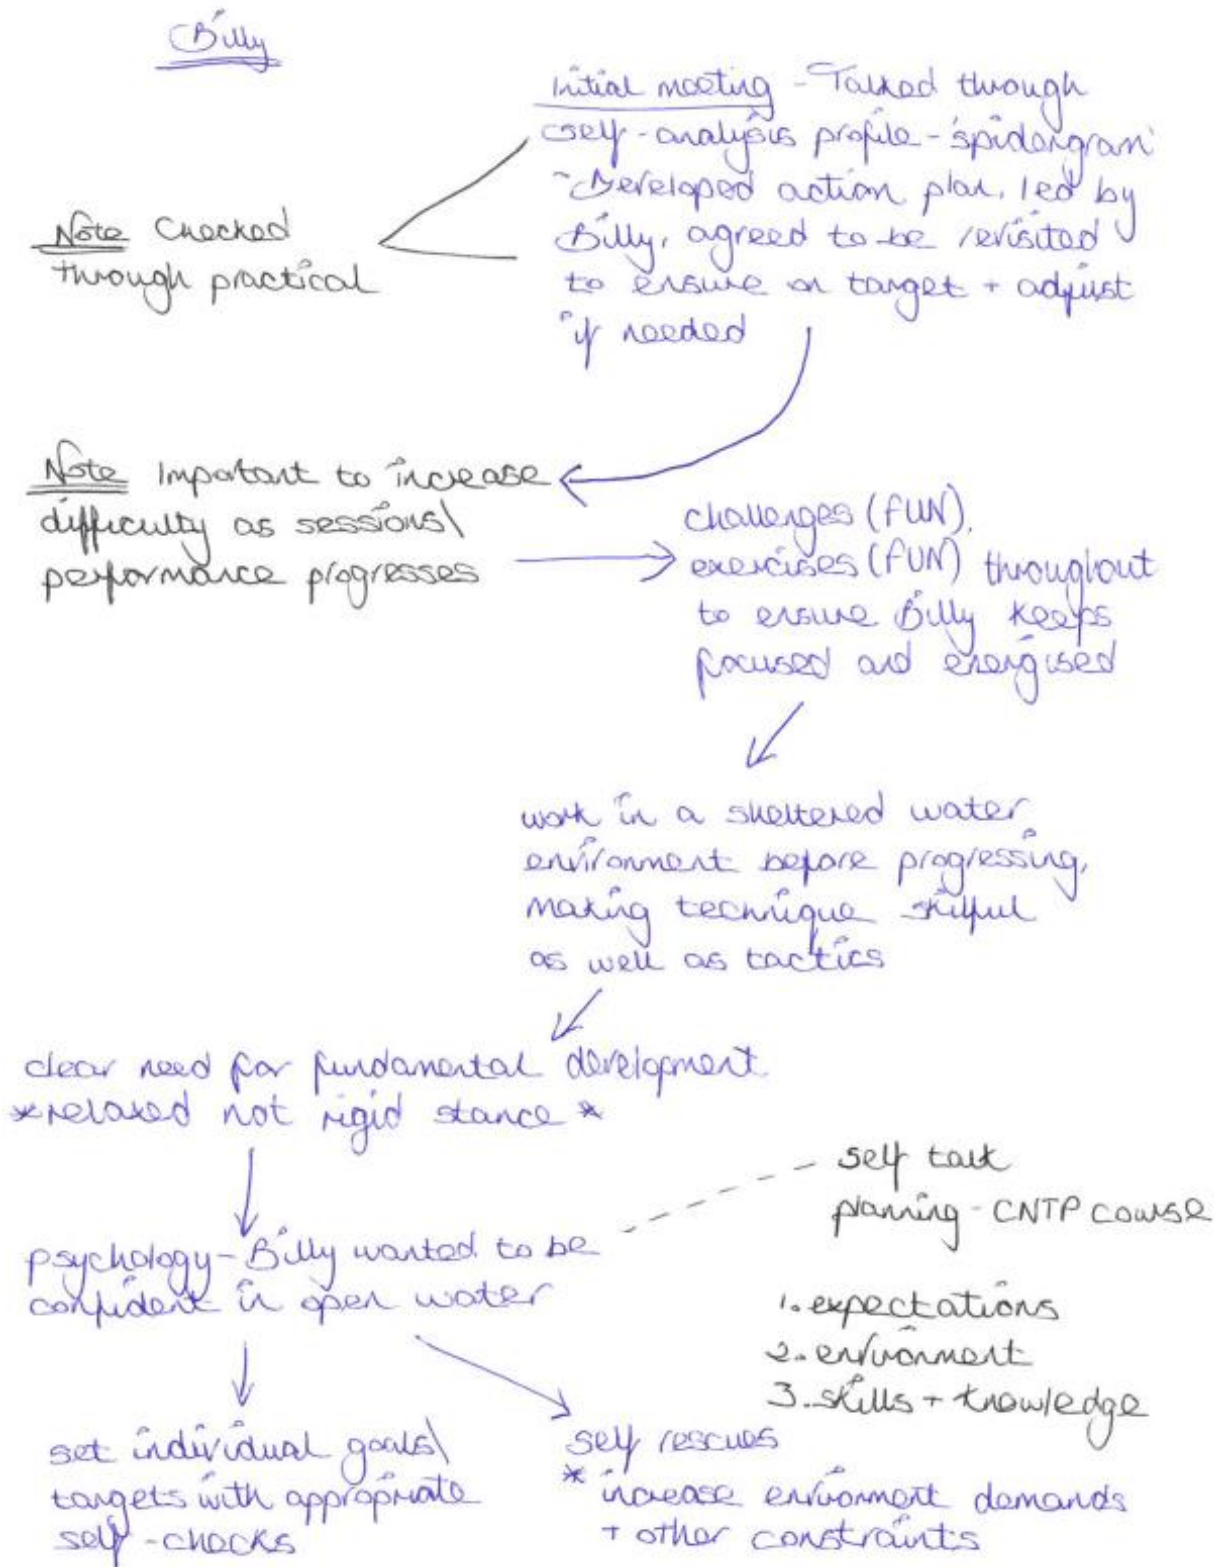 Billy
Initial meeting - Talked through
self-analysis profile - 'spidergram'
- Developed action plan, led by
Billy, agreed to be revisited
to ensure on target + adjust
if needed
Note Checked
through practical
Note Important to increase
difficulty as sessions\
performance progresses
challenges (FUN),
exercises (FUN) throughout
to ensure Billy keeps
focused and energised
work in a sheltered water
environment before progressing,
making technique skilful
as well as tactics
clear need for fundamental development
*relaxed not rigid stance*
psychology - Billy wanted to be
confident in open water
self talk
planning - CNTP course
1. expectations
2. environment
3. skills + knowledge
set individual goals\
targets with appropriate
self-checks
self rescues
* increase environment demands
+ other constraints